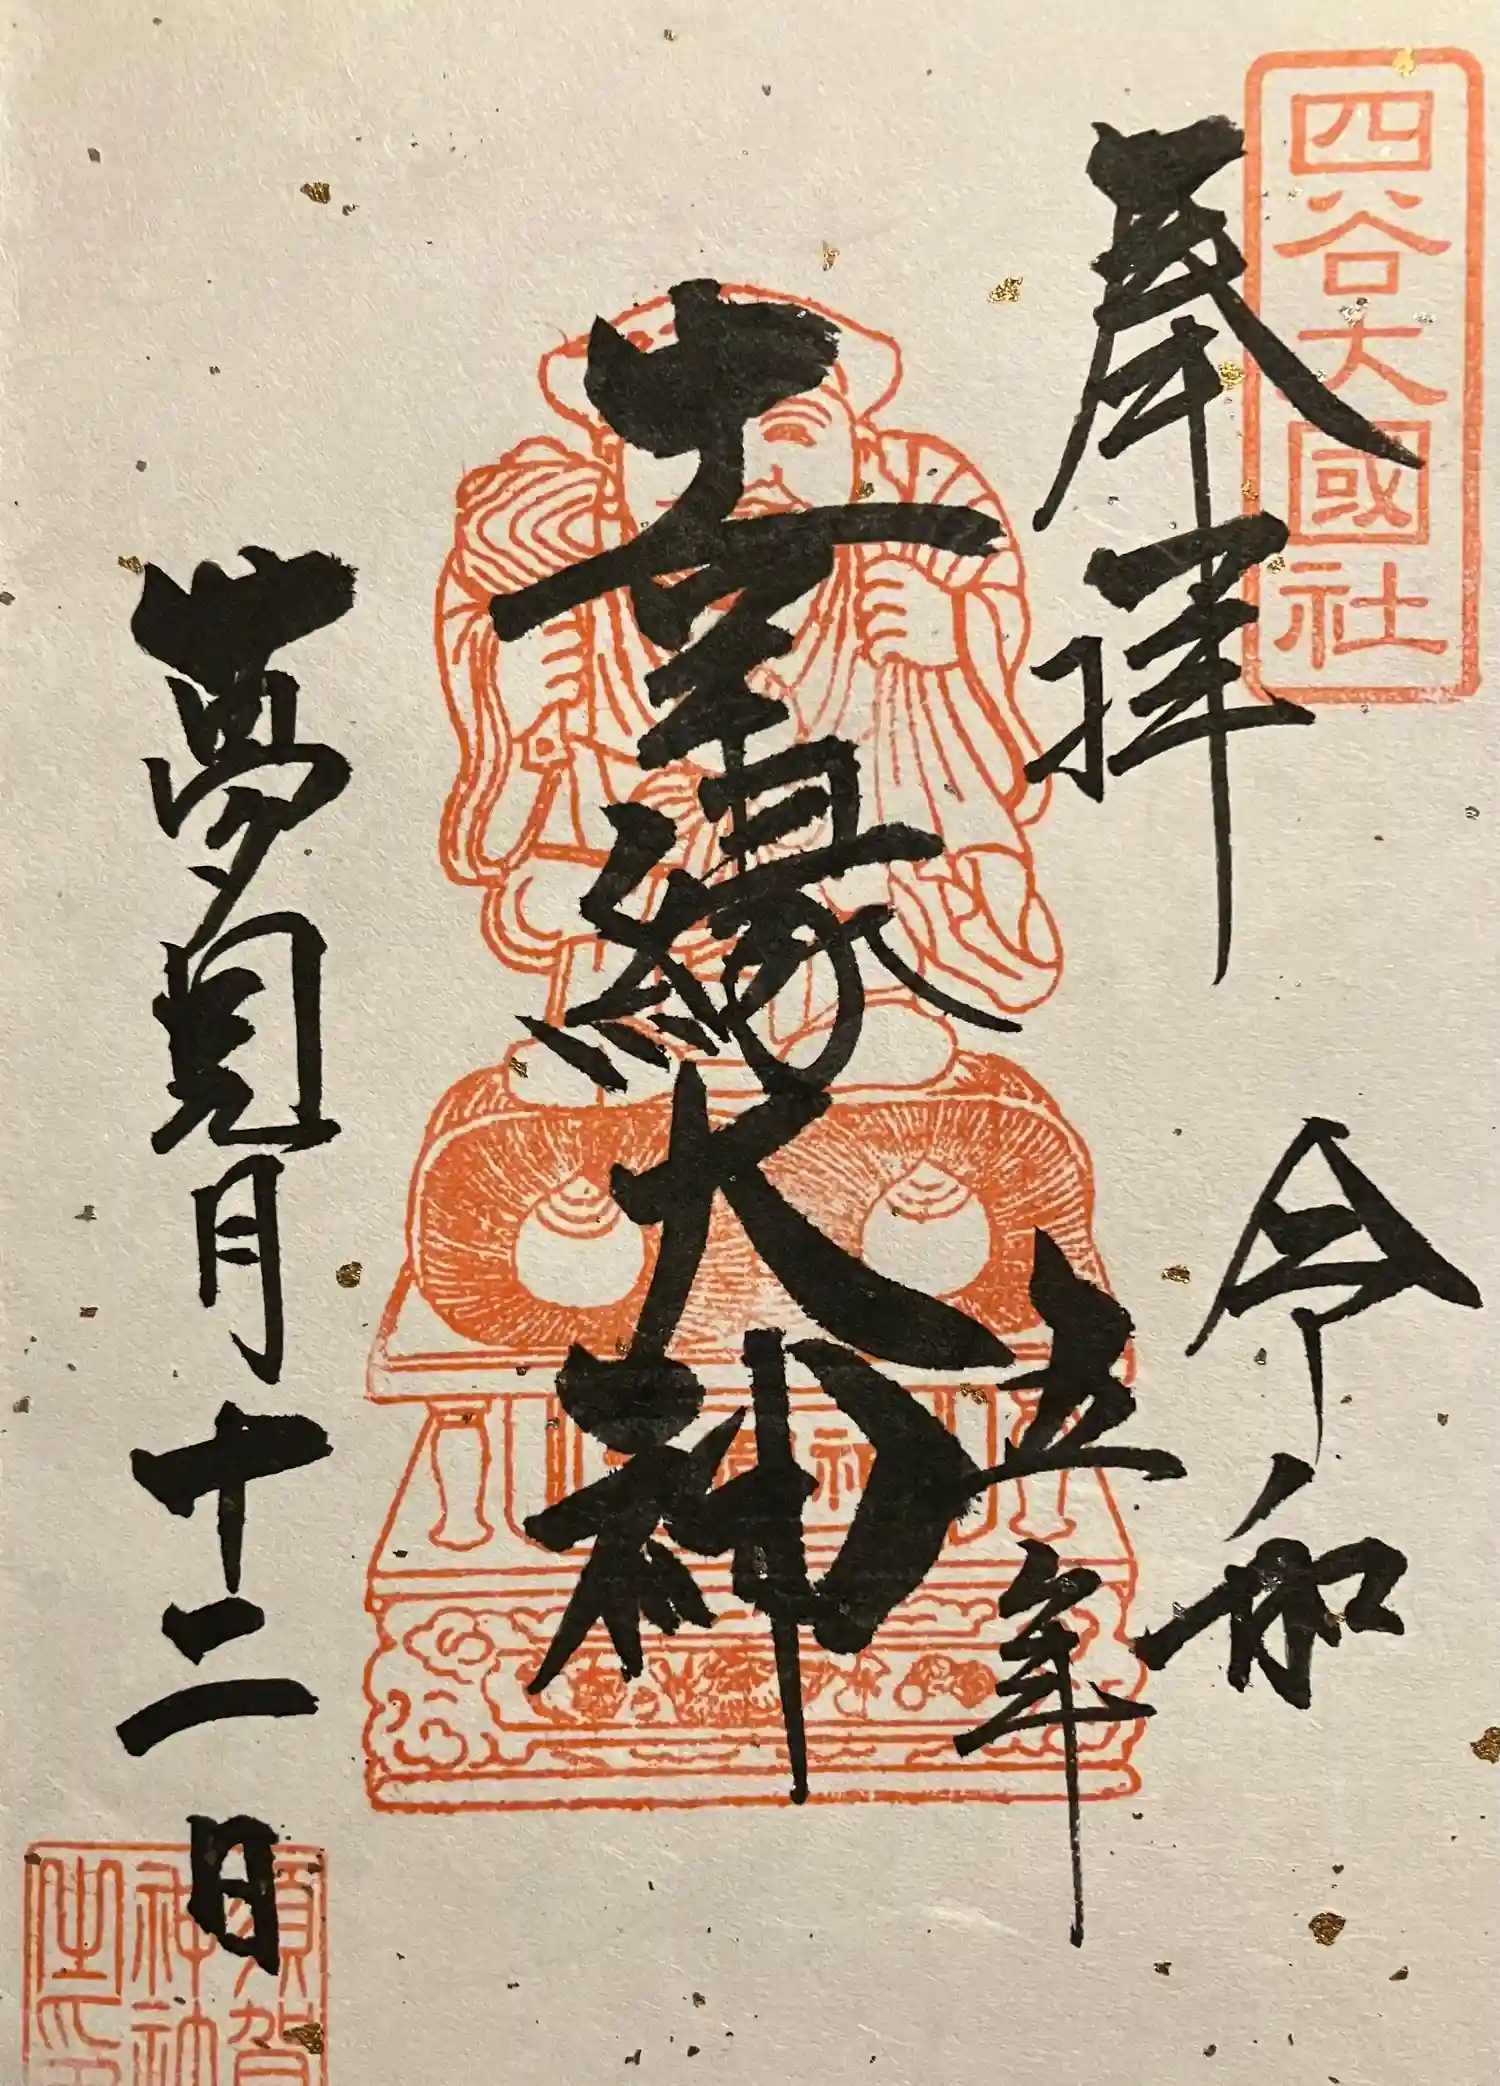 四谷大國社
奉拝
令和
五年
幸縁大神
夢見月十二日
須賀
神社
之印